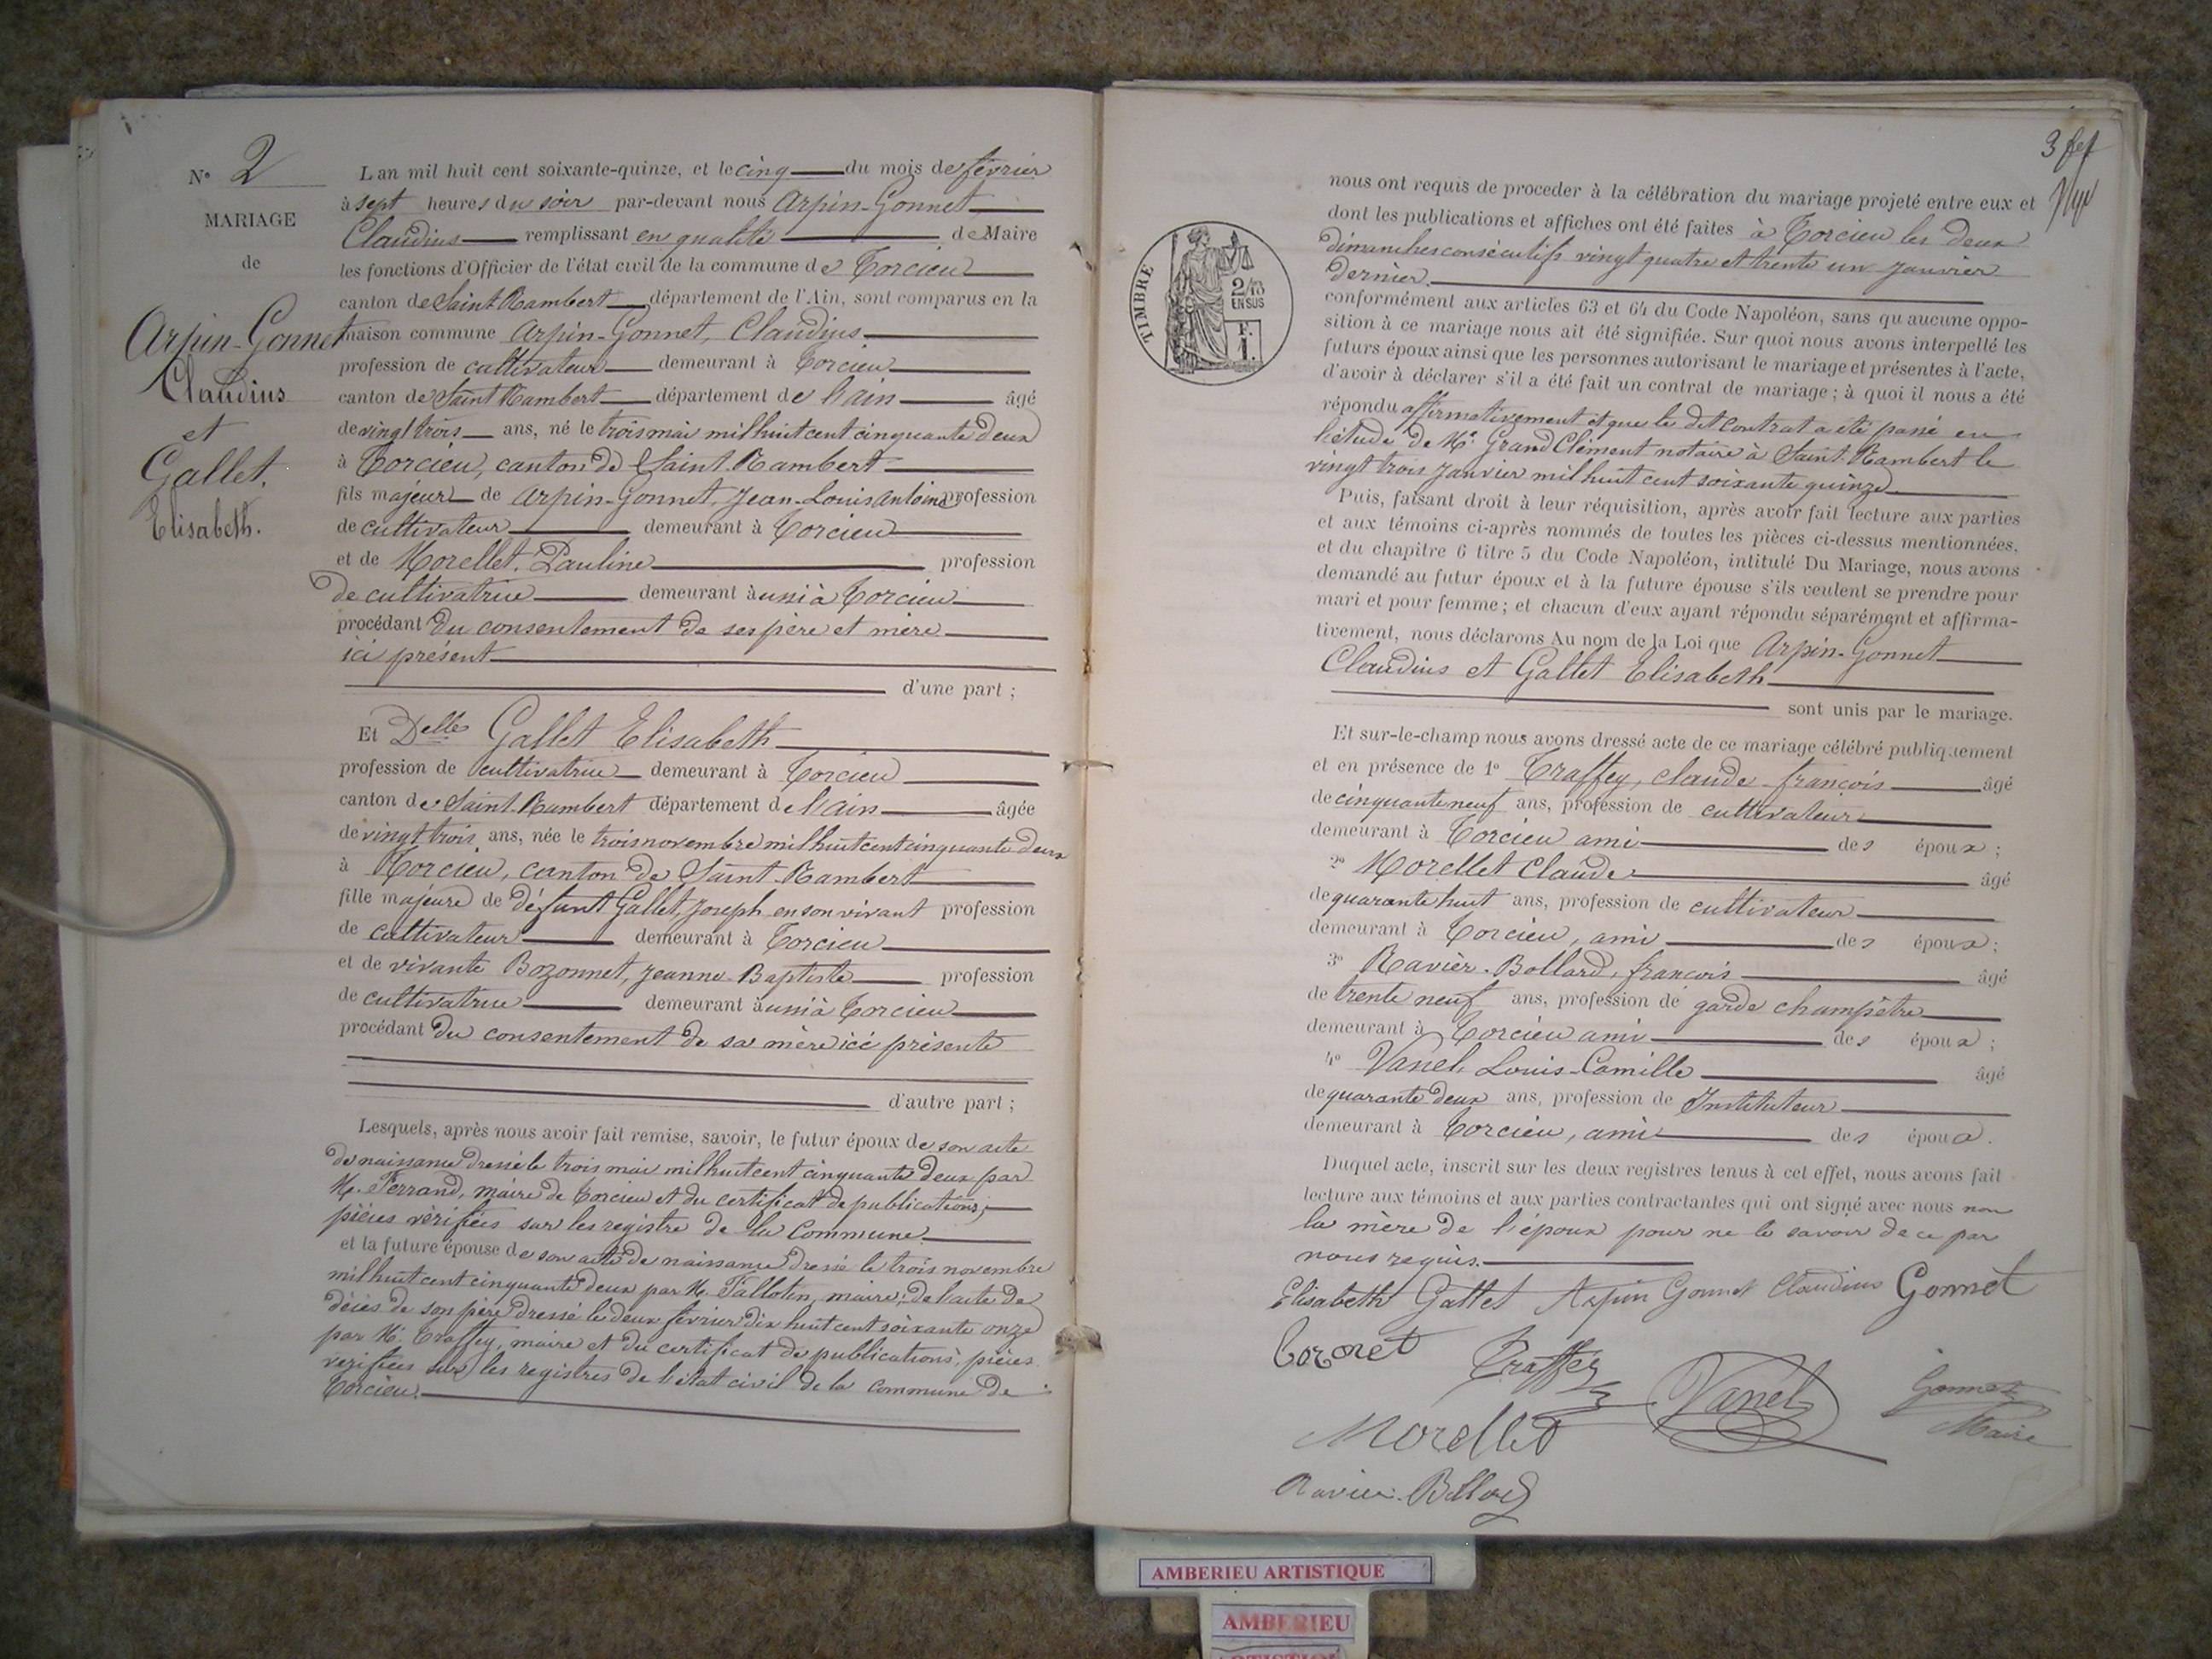 N° 2
MARIAGE
de
Arpin-Gonnet
Claudius
et
Gallet.
Elisabeth.
L an mil huit cent soixante-quinze, et le cinq du mois de février
à sept heures du soir par-devant nous Arpin-Gonnet
Claudius remplissant en qualité de Maire
les fonctions d'Officier de l'état civil de la commune de Torcieu
canton de Saint Rambert département de l'Ain, sont comparus en la
maison commune Arpin-Gonnet, Claudius.
profession de cultivateur demeurant à Torcieu
canton de Saint Rambert département de l'ain âgé
de vingt trois ans, né le trois mai mil huit cent cinquante deux
à Torcieu, canton de Saint-Rambert
fils majeur de Arpin-Gonnet, Jean-Louis Antoine profession
de cultivateur demeurant à Torcieu
et de Morellet, Pauline profession
de cultivatrice demeurant aussi à Torcieu
procédant du consentement de ses père et mère
ici présent
d'une part ;
Et Delle Gallet Elisabeth
profession de cultivatrice demeurant à Torcieu
canton de Saint-Rambert département de l'ain âgée
de vingt trois ans, née le trois novembre mil huit cent cinquante deux
à Torcieu, canton de Saint-Rambert
fille majeure de défunt Gallet, Joseph en son vivant profession
de cultivateur demeurant à Torcieu
et de vivante Bozonnet, Jeanne-Baptiste profession
de cultivatrice demeurant aussi à Torcieu
procédant du consentement de sa mère ici présente
d'autre part ;
Lesquels, après nous avoir fait remise, savoir, le futur époux de son acte
de naissance dressé le trois mai mil huit cent cinquante deux par
M. Ferrand, maire de Torcieu et du certificat de publications,
pièces vérifiées sur les registre de la Commune
et la future épouse de son acte de naissance dressé le trois novembre
mil huit cent cinquante deux par M. Tallotin, maire; de l'acte de
décès de son père dressé le deux février dix huit cent soixante onze
par M. Traffey, maire et du certificat de publications, pièces
vérifiées sur les registres de l'état civil de la commune de
Torcieu.
nous ont requis de proceder à la célébration du mariage projeté entre eux et
dont les publications et affiches ont été faites à Torcieu les deux
dimanches consécutifs vingt quatre et trente un Janvier
dernier.
TIMBRE
2/10
EN SUS
F.
1.
conformément aux articles 63 et 64 du Code Napoléon, sans qu aucune oppo-
sition à ce mariage nous ait été signifiée. Sur quoi nous avons interpellé les
futurs époux ainsi que les personnes autorisant le mariage et présentes à l'acte,
d'avoir à déclarer s'il a été fait un contrat de mariage ; à quoi il nous a été
répondu affirmativement et que le dit contrat a été passé en
l'étude de Me Grand Clément notaire à Saint-Rambert le
vingt trois Janvier mil huit cent soixante quinze
Puis, faisant droit à leur réquisition, après avoir fait lecture aux parties
et aux témoins ci-après nommés de toutes les pièces ci-dessus mentionnées,
et du chapitre 6 titre 5 du Code Napoléon, intitulé Du Mariage, nous avons
demandé au futur époux et à la future épouse s'ils veulent se prendre pour
mari et pour femme ; et chacun d'eux ayant répondu séparément et affirma-
tivement, nous déclarons Au nom de la Loi que Arpin-Gonnet
Claudius et Gallet Elisabeth
sont unis par le mariage.
Et sur-le-champ nous avons dressé acte de ce mariage célébré publiquement
et en présence de 1° Traffey, claude françois âgé
de cinquante neuf ans, profession de cultivateur
demeurant à Torcieu ami des époux ;
2° Morellet Claude âgé
de quarante huit ans, profession de cultivateur
demeurant à Torcieu, ami des époux ;
3° Ravier-Bollard, françois âgé
de trente neuf ans, profession de garde champêtre
demeurant à Torcieu ami des époux ;
4° Vanel Louis-Camille âgé
de quarante deux ans, profession de Instituteur
demeurant à Torcieu, ami des époux.
Duquel acte, inscrit sur les deux registres tenus à cet effet, nous avons fait
lecture aux témoins et aux parties contractantes qui ont signé avec nous non
la mère de l'époux pour ne le savoir de ce par
nous requis.
Elisabeth Gallet Arpin Gonnet Claudius Gonnet
Traffey
Vanel
Gonnet
Maire
Morellet
Ravier-Bollard
AMBERIEU ARTISTIQUE
AMBERIEU
ARTISTIQUE